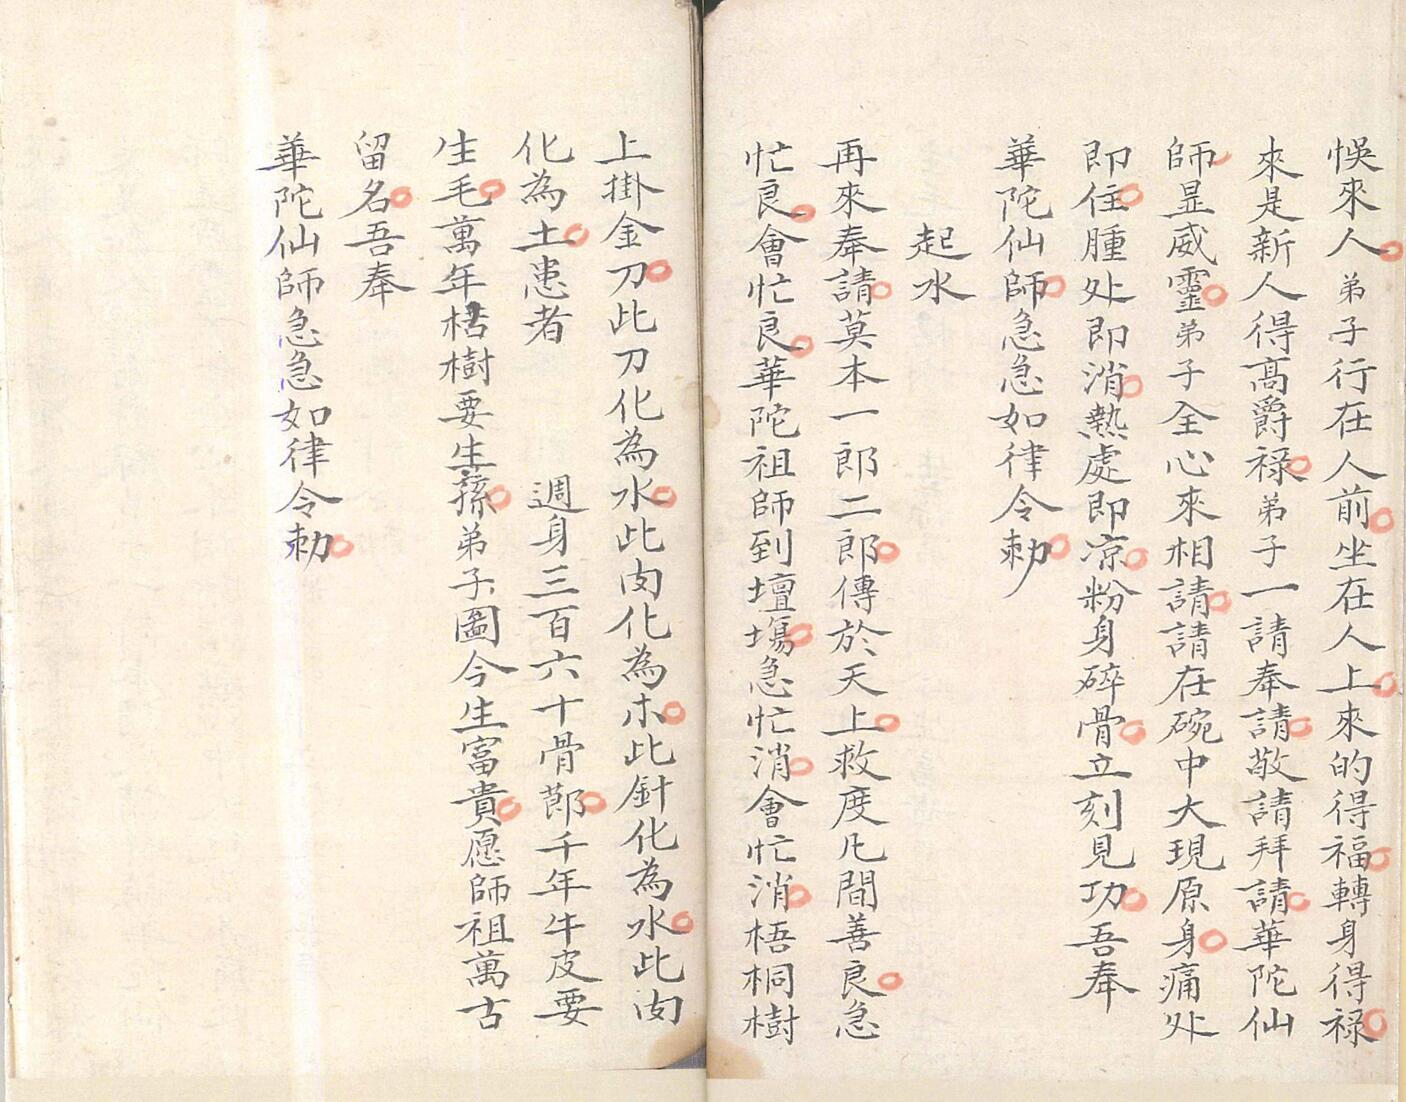 悞來人弟子行在人前坐在人上來的得福轉身得祿
來是新人得髙爵祿弟子一請奉請敬請拜請華陀仙
師显威靈弟子全心來相請請在碗中大現原身痛处
即住腫处即消熱處即凉粉身碎骨立刻見功吾奉
華陀仙師急急如律令勅
起水
再來奉請莫本一郎二郎傳於天上救度凡間善良急
忙良會忙良華陀祖師到壇塲急忙消會忙消梧桐樹
上掛金刀此刀化為水此肉化為木此針化為水此肉
化為土患者　週身三百六十骨節千年牛皮要
生毛萬年枯樹要生蓀弟子圖今生富貴愿師祖萬古
留名吾奉
華陀仙師急急如律令勅